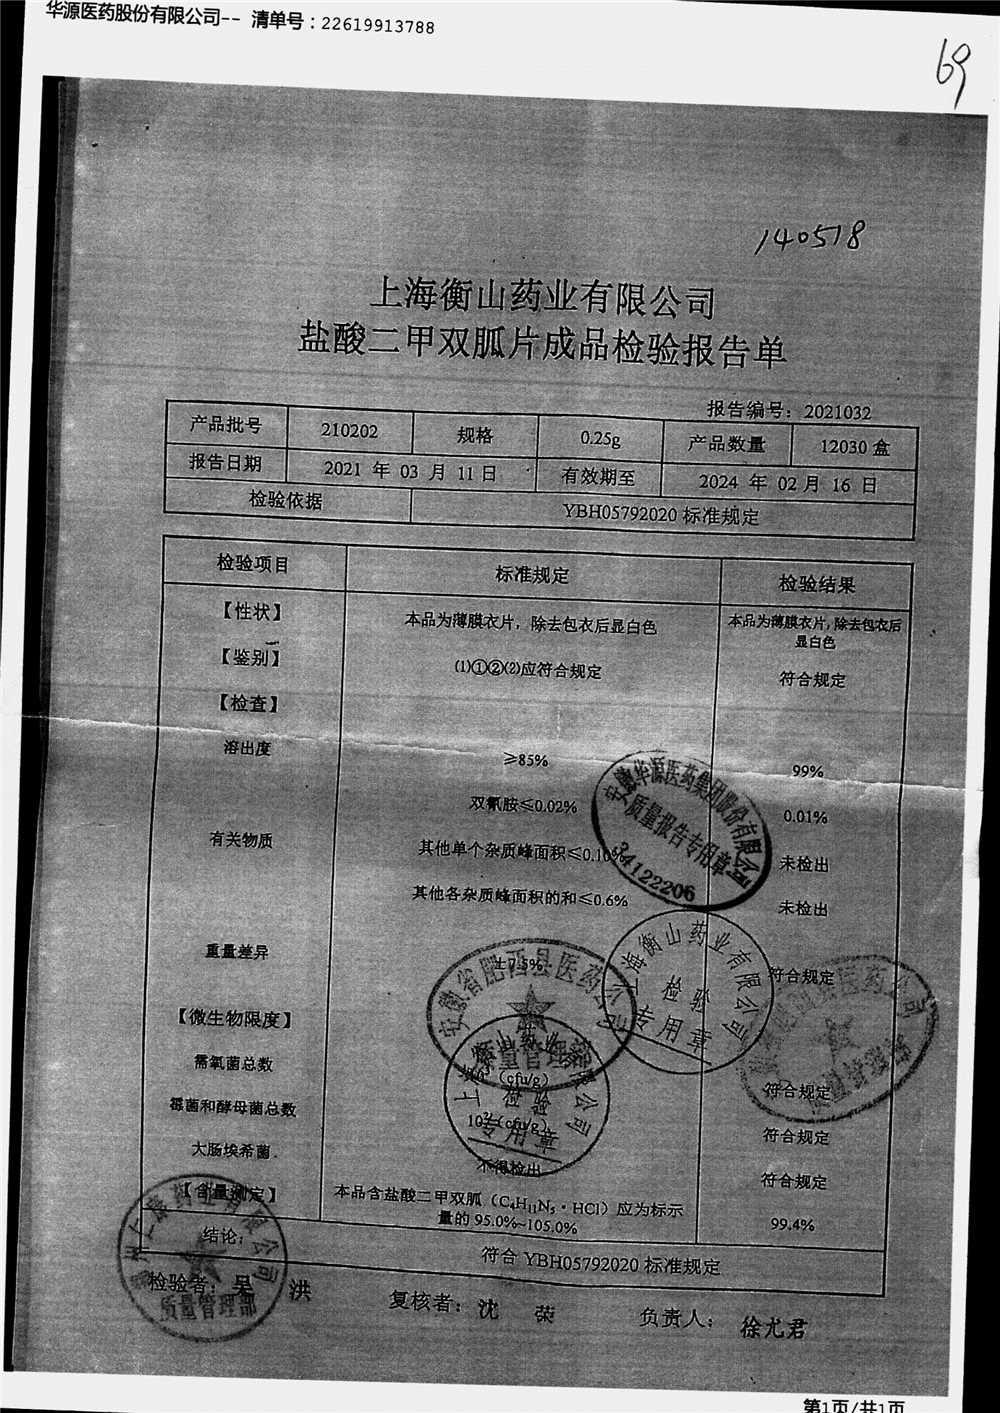 华源医药股份有限公司-- 清单号：22619913788
69
140518
上海衡山药业有限公司
盐酸二甲双胍片成品检验报告单
报告编号：2021032
产品批号 210202 规格 0.25g 产品数量 12030 盒
报告日期 2021 年 03 月 11 日 有效期至 2024 年 02 月 16 日
检验依据 YBH05792020 标准规定
检验项目 标准规定 检验结果
【性状】 本品为薄膜衣片，除去包衣后显白色 本品为薄膜衣片，除去包衣后
显白色
【鉴别】 (1)①②(2)应符合规定 符合规定
【检查】
溶出度 ≥85% 99%
双氰胺≤0.02% 0.01%
有关物质 其他单个杂质峰面积≤0.10% 未检出
其他各杂质峰面积的和≤0.6% 未检出
重量差异 ±7.5% 符合规定
【微生物限度】
需氧菌总数 (cfu/g) 符合规定
霉菌和酵母菌总数 10² (cfu/g) 符合规定
大肠埃希菌 不得检出 符合规定
【含量测定】 本品含盐酸二甲双胍（C₄H₁₁N₅·HCl）应为标示
量的 95.0%~105.0% 99.4%
结论： 符合 YBH05792020 标准规定
检验者：吴 洪 复核者：沈 荣 负责人：徐尤君
安徽华源医药集团股份有限公司
质量报告专用章
34122206
上海衡山药业有限公司
检验
专用章
安徽省肥西县医药公司
质量管理
上海衡山药业有限公司
检验
专用章
药业有限公司
质量管理部
第1页/共1页